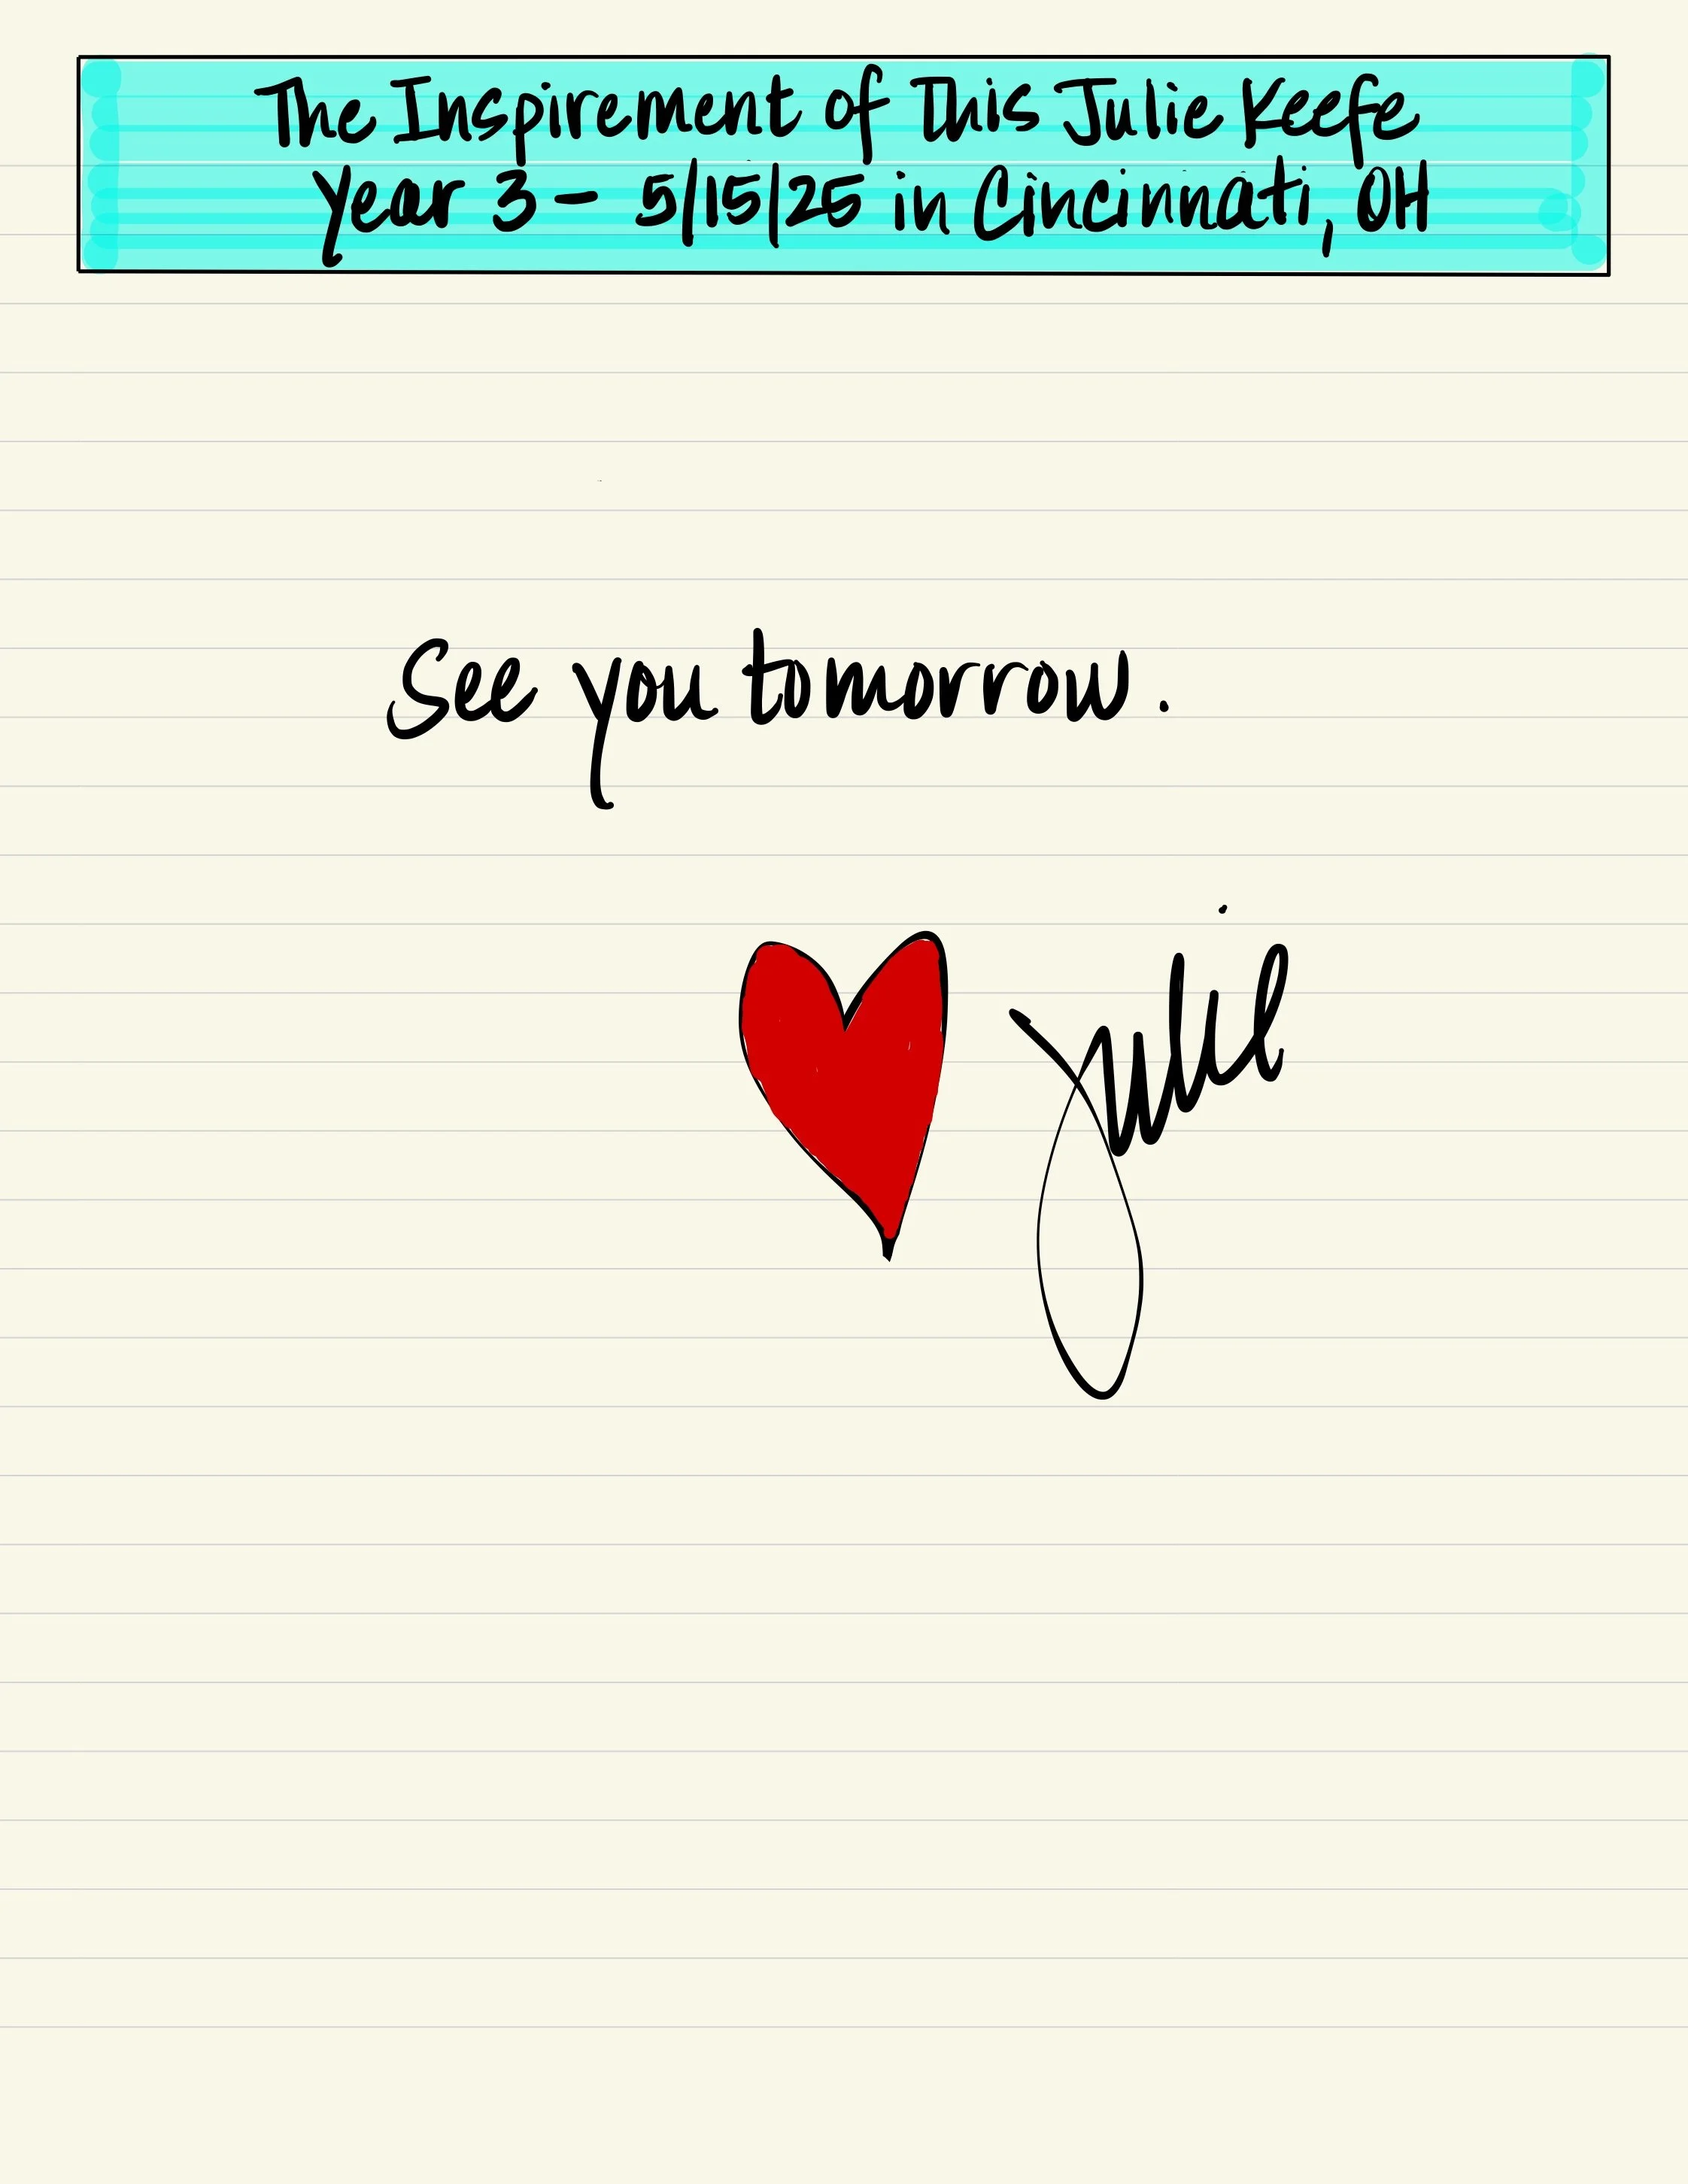 The Inspirement of This Julie Keefe
Year 3 - 5/15/25 in Cincinnati, OH
See you tomorrow.
Julie